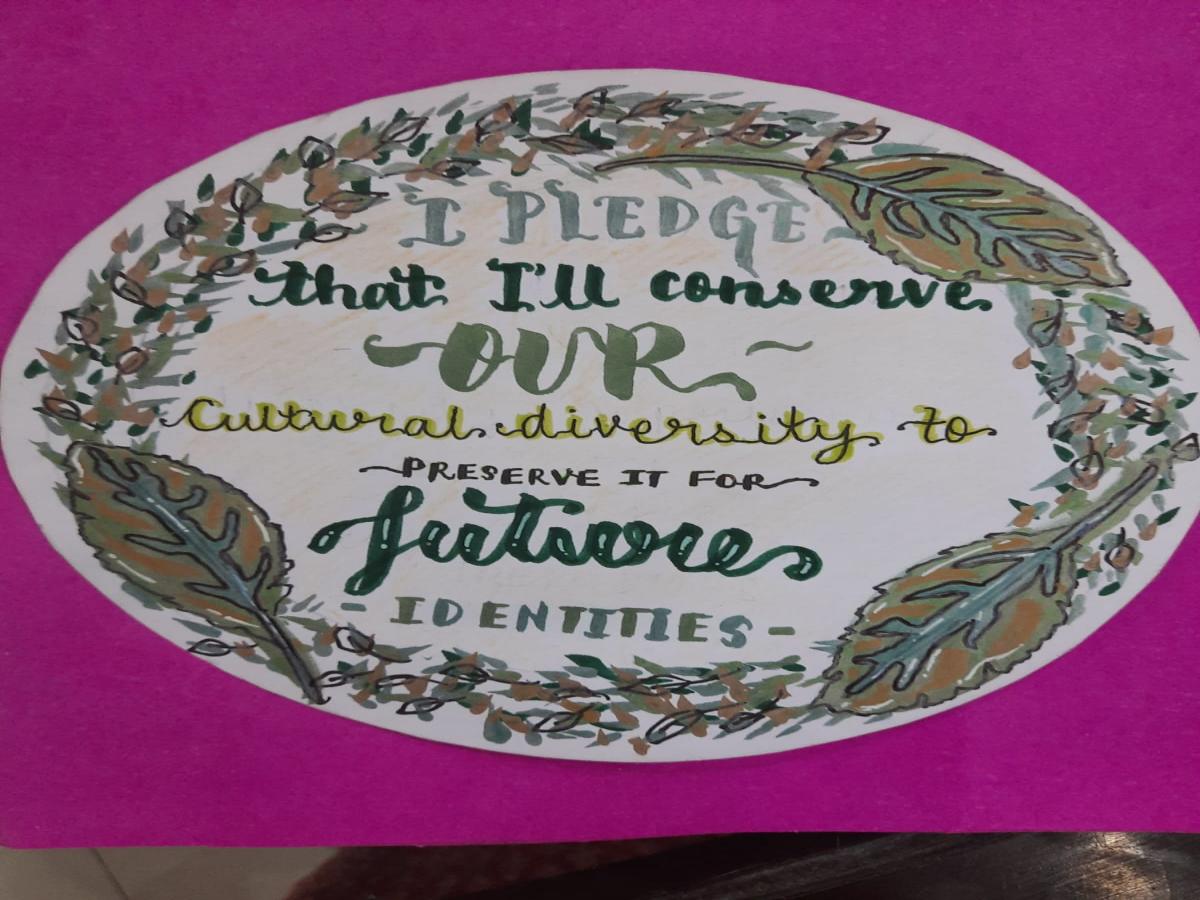 I PLEDGE
that I'll conserve
OUR
Cultural diversity to
PRESERVE IT FOR
future
- IDENTITIES -